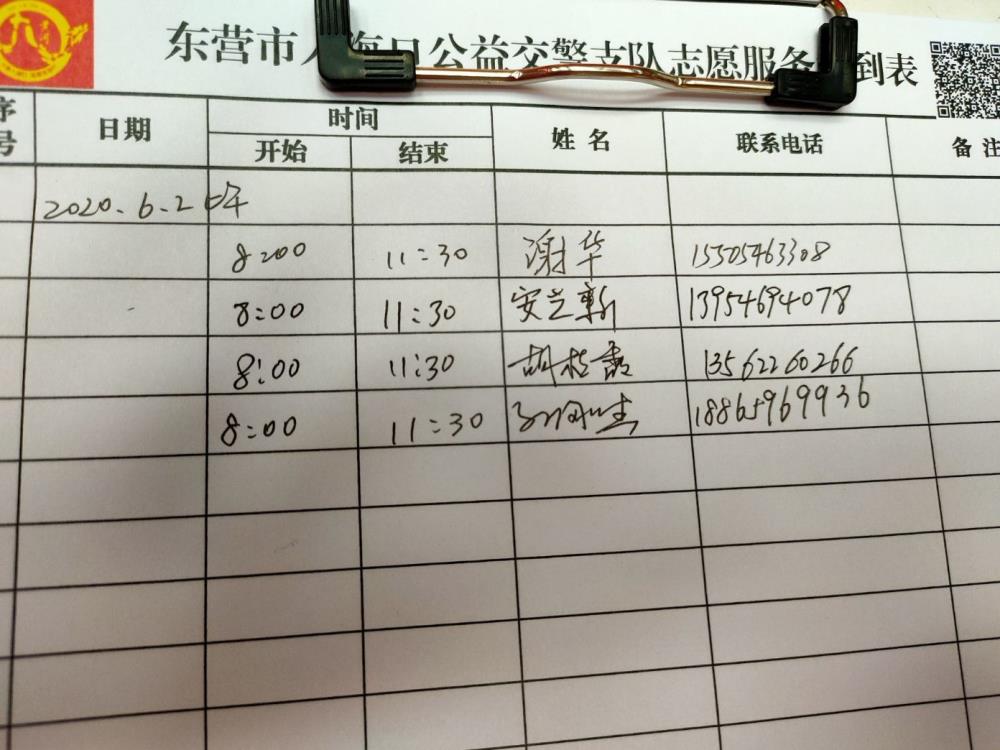 东营市人海口公益交警支队志愿服务到表
序号 日期 时间 姓名 联系电话 备注
开始 结束
2020.6.2
8:00 11:30 谢华 15505463308
8:00 11:30 安兰新 13954694078
8:00 11:30 胡桂香 13562260266
8:00 11:30 18865969936